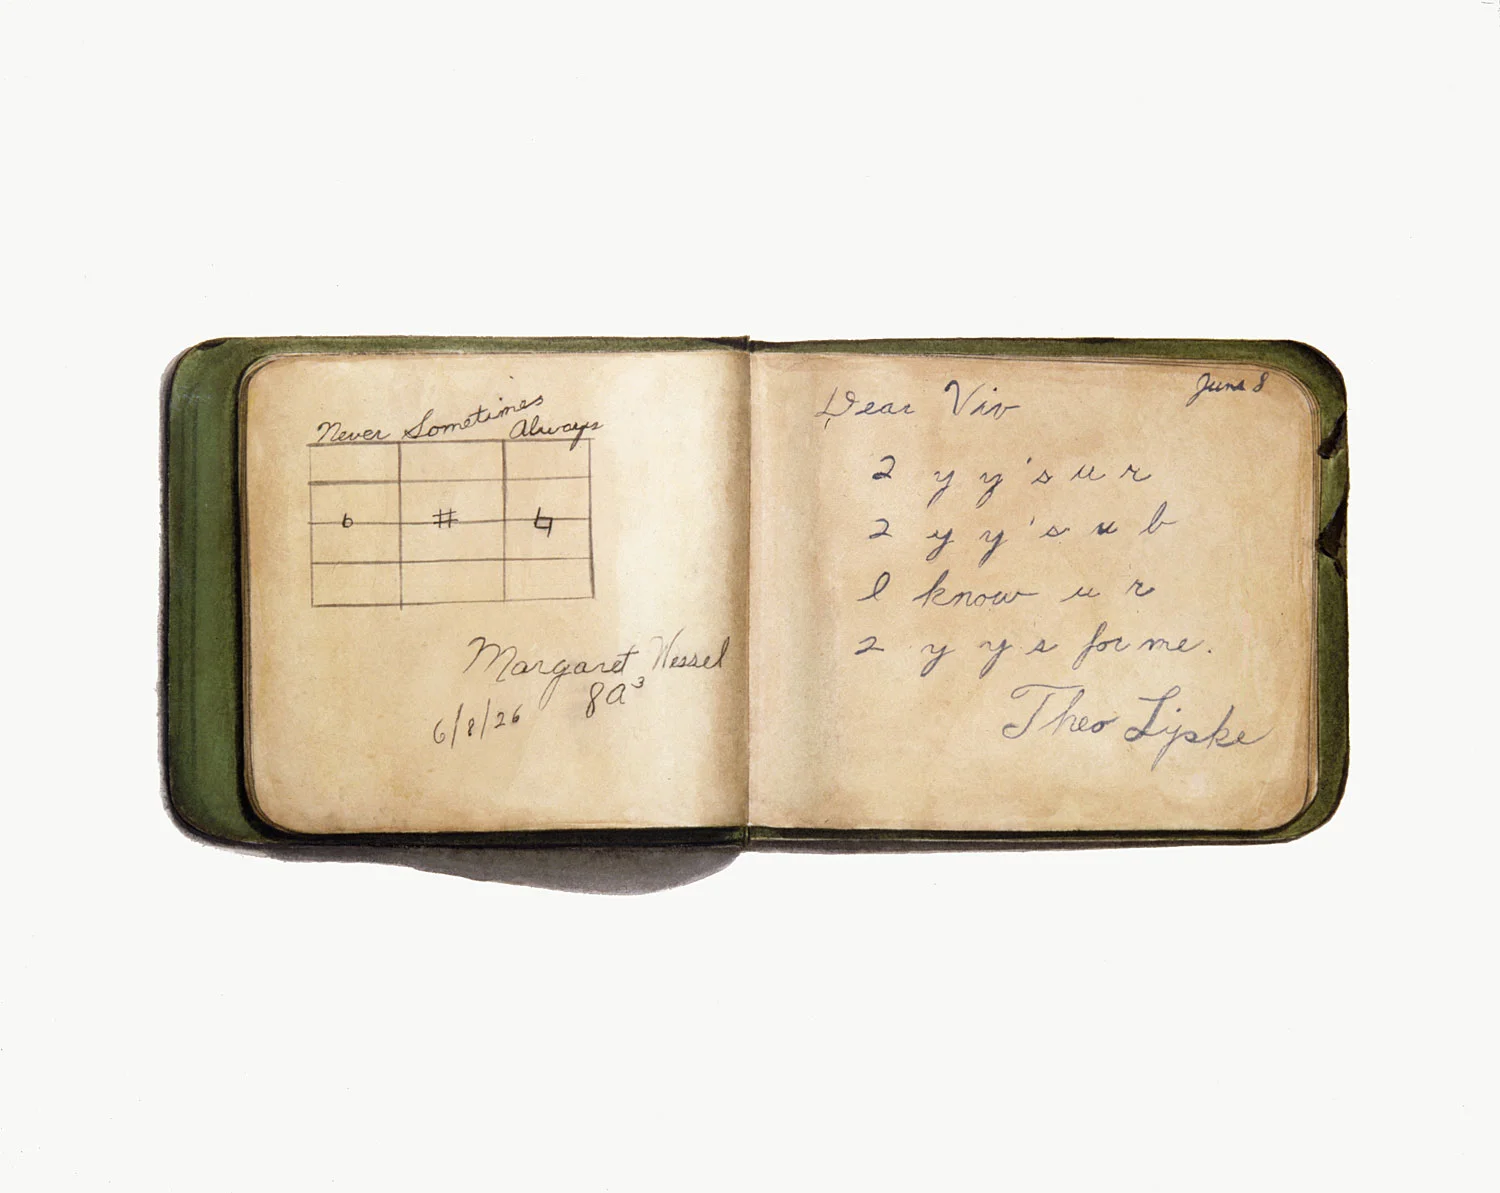 Never Sometimes Always
b # ♮
Margaret Wessel
8A³
6/8/26
June 8
Dear Viv
2 y y's u r
2 y y's u b
I know u r
2 y y s for me.
Theo Lipske